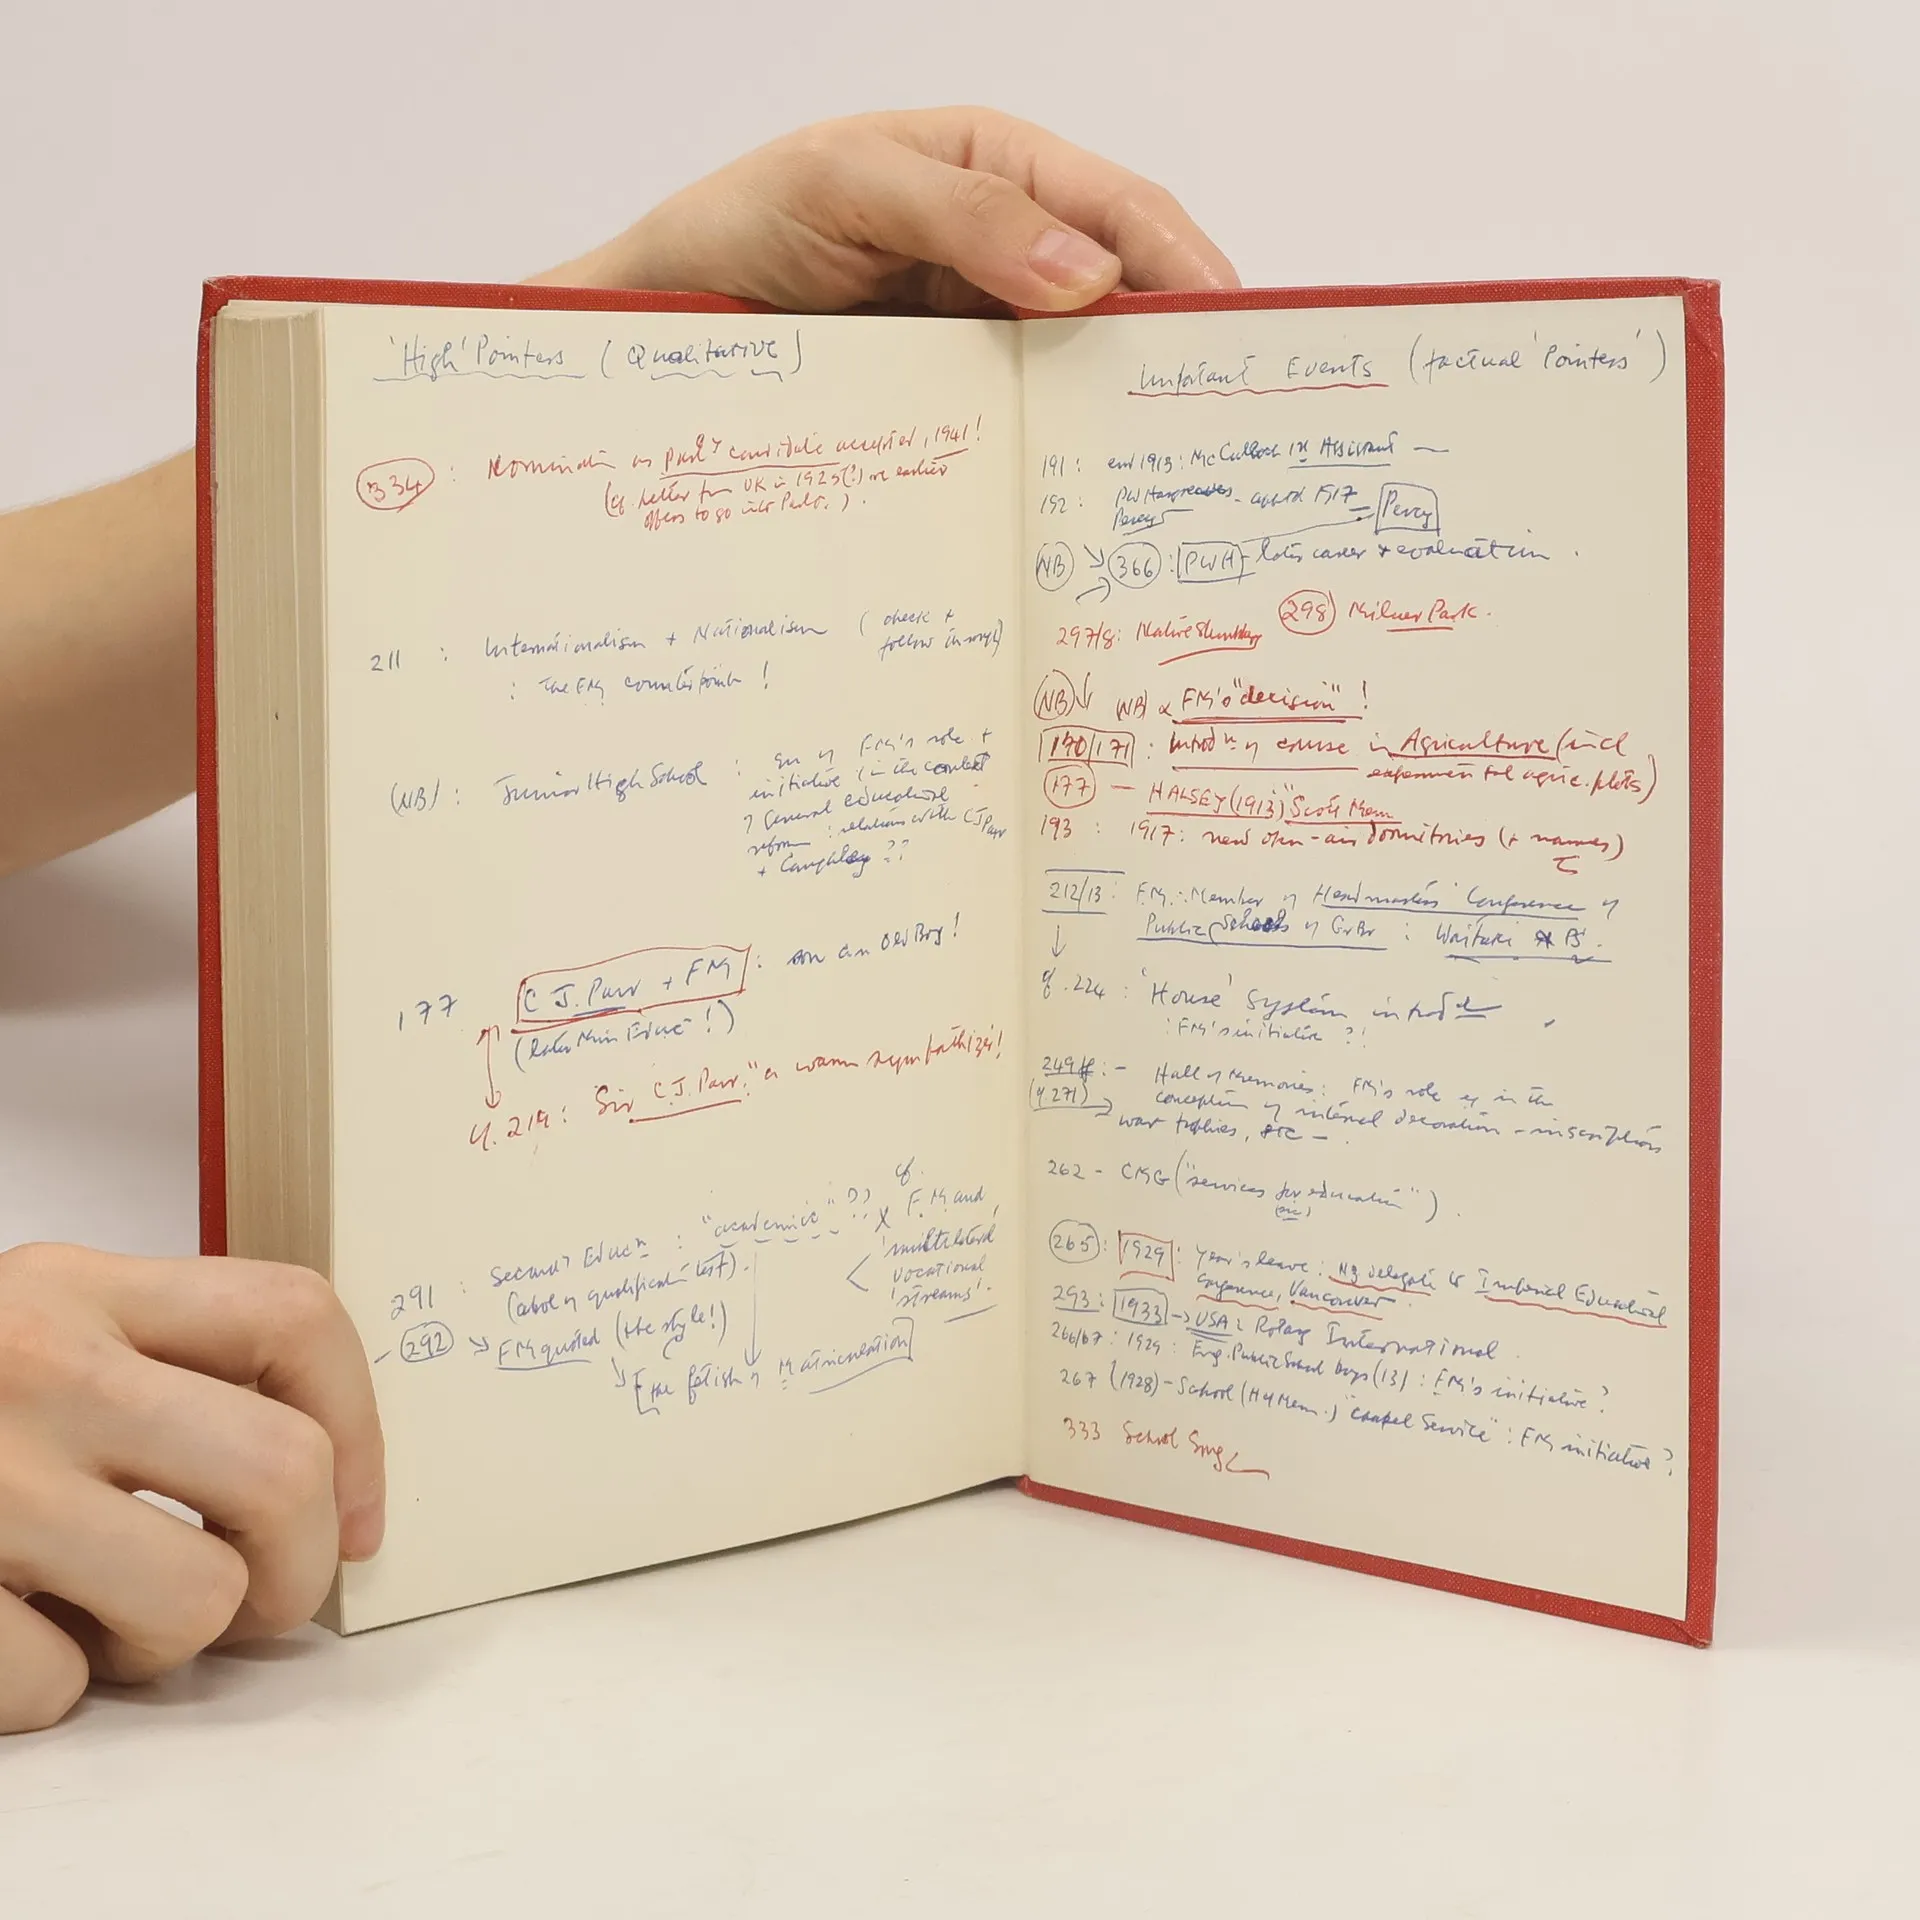 'High' Pointers (Qualitative)
334 : Nomination as Parl^y candidate accepted, 1941!
(cf. letter from UK in 1925(?) re earlier
offers to go into Parlt.).
211 : Internationalism + Nationalism (check +
follow through)
: The FM counterpoint!
(NB) : Junior High School : qn of FM's role +
initiative (in the context
of General educational
reform : relations with CJ Parr
+ Caughley ??
177 C J. Parr + FM : son an Old Boy!
(later Min Educ^n!)
cf. 219 : Sir C.J. Parr: "a warm sympathizer!
291 : Second^y Educ^n : "academic" ??
(abol of qualificat^n test).
cf.
x FM and
'multilateral
vocational
streams'.
- 292 → FM quoted (the style!)
[the fetish of Matriculation]
Important Events (factual 'Pointers')
191 : end 1913 : McCulloch 1st Assistant —
192 : PW Hargreaves - appt^d 1917 Percy
Percy
NB → 366 : PWH - later career + evaluation.
297/8 : Native Shrubbery 298 Milner Park.
NB ↓ (NB) FM's "decision"!
170/171 : Introd^n of course in Agriculture (incl
experimental agric. plots)
177 — HALSEY (1913) "Scott Mem
193 : 1917 : new open-air dormitories (+ names)
212/13 : FM : Member of Headmasters' Conference of
Public Schools of Gr Br : Waitaki PS.
cf. 224 : 'House' System introd^d
: FM's initiative ?!
249ff : - Hall of Memories : FM's role eg in the
(cf. 271) conception of internal decoration - inscriptions
war trophies, etc -
262 - CMG ("services for education").
(sic)
265 : 1929 : Year's leave : NZ delegate to Imperial Educational
Conference, Vancouver.
293 : 1933 → USA : Rotary International.
266/67 : 1929 : Eng. Public School boys (13) : FM's initiative?
267 (1928) - School (H of Mem.) "Chapel Service" : FM initiative?
333 School Song